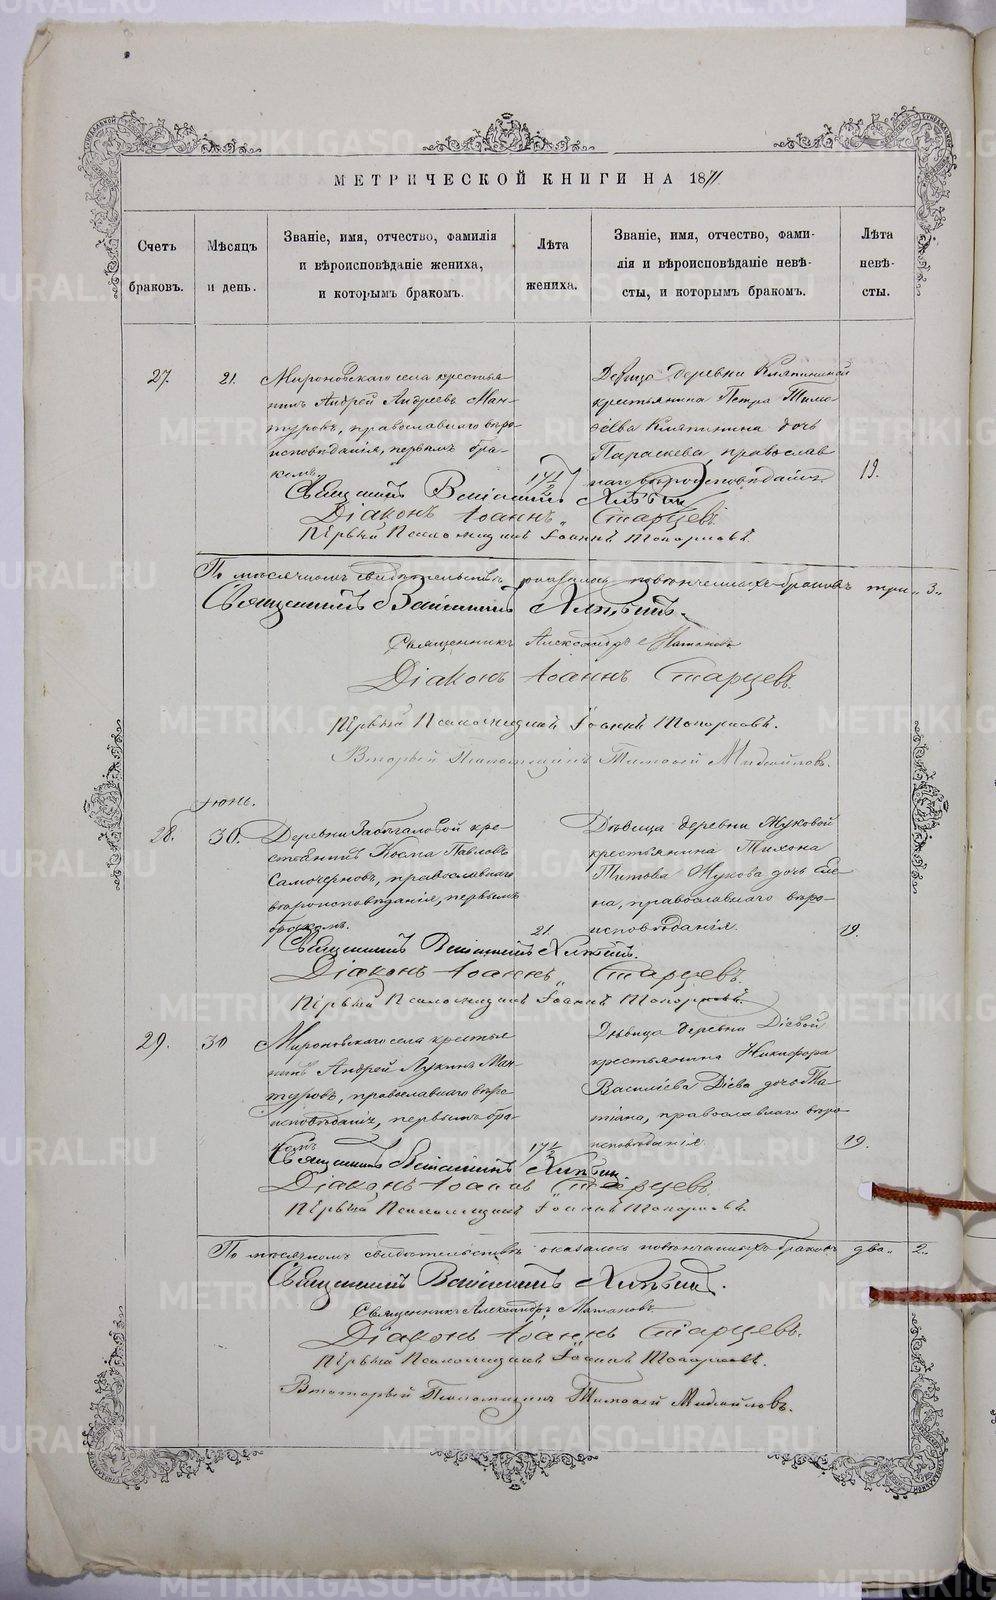 МЕТРИЧЕСКОЙ КНИГИ НА 18
Счетъ браковъ.
Мѣсяцъ и день.
Званіе, имя, отчество, фамилія
и вѣроисповѣданіе жениха,
и которымъ бракомъ.
Лѣта жениха.
Званіе, имя, отчество, фами-
лія и вѣроисповѣданіе невѣ-
сты, и которымъ бракомъ.
Лѣта невѣ-
сты.
27.
21.
Мироновскаго села крестья-
нинъ Андрей Андреевъ Ман-
туровъ, православнаго вѣро-
исповѣданія, первымъ бра-
комъ.
17 1/2
Девица деревни Кляпининой
крестьянина Петра Тимо-
Кляпинина дочь
Параскева, православ
наго вѣроисповѣданія
19.
Священникъ
Діаконъ Іоаннъ Старцевъ
Первый Псаломщикъ Іоаннъ Топорковъ.
По мѣсячномъ свидѣтельствѣ оказалось повѣнчанныхъ браковъ три 3.
Священникъ
Священникъ Александръ
Діаконъ Іоаннъ Старцевъ.
Первый Псаломщикъ Іоаннъ Топорковъ.
Вторый Псаломщикъ Тимофей Михайловъ.
Іюнь.
28.
30.
Деревни кре-
стьянинъ Косма Павловъ
Самочерновъ, православнаго
вѣроисповѣданія, первымъ
бракомъ.
21.
Дѣвица деревни Жуковой
крестьянина Тихона
Титова Жукова дочь Еле-
на, православнаго вѣро-
исповѣданія.
19.
Священникъ
Діаконъ Іоаннъ Старцевъ.
Первый Псаломщикъ Іоаннъ Топорковъ.
29.
30
Мироновскаго села крестья
нинъ Андрей Лукинъ Ман-
туровъ, православнаго вѣро
исповѣданія, первымъ бра-
комъ
17 1/2
Дѣвица деревни Діевой
крестьянина Никифора
Василіева Діева дочь Та-
тіана, православнаго вѣро-
исповѣданія.
19.
Священникъ
Діаконъ Іоаннъ Старцевъ.
Первый Псаломщикъ Іоаннъ Топорковъ.
По мѣсячномъ свидѣтельствѣ оказалось повѣнчанныхъ браковъ два 2.
Священникъ
Священникъ Александръ
Діаконъ Іоаннъ Старцевъ.
Первый Псаломщикъ Іоаннъ Топорковъ.
Псаломщикъ Тимофей Михайловъ.
METRIKI.GASO-URAL.RU